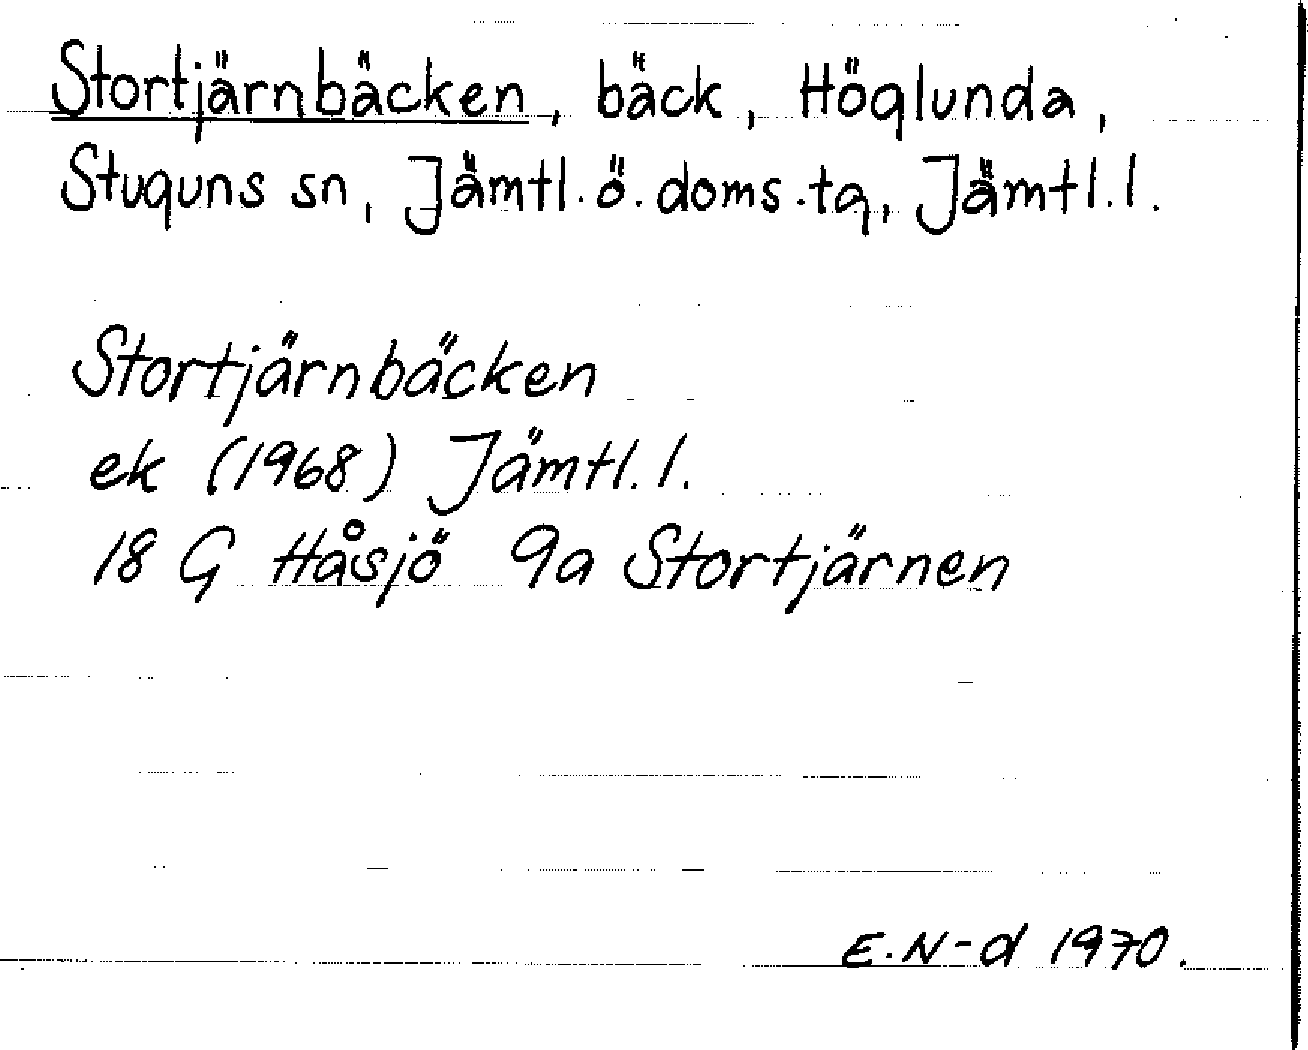 Stortjärnbäcken, bäck, Höglunda,
Stuguns sn, Jämtl. ö. doms. tg, Jämtl. l.
Stortjärnbäcken
ek (1968) Jämtl. l.
18 G Håsjö 9a Stortjärnen
E. N-d 1970.